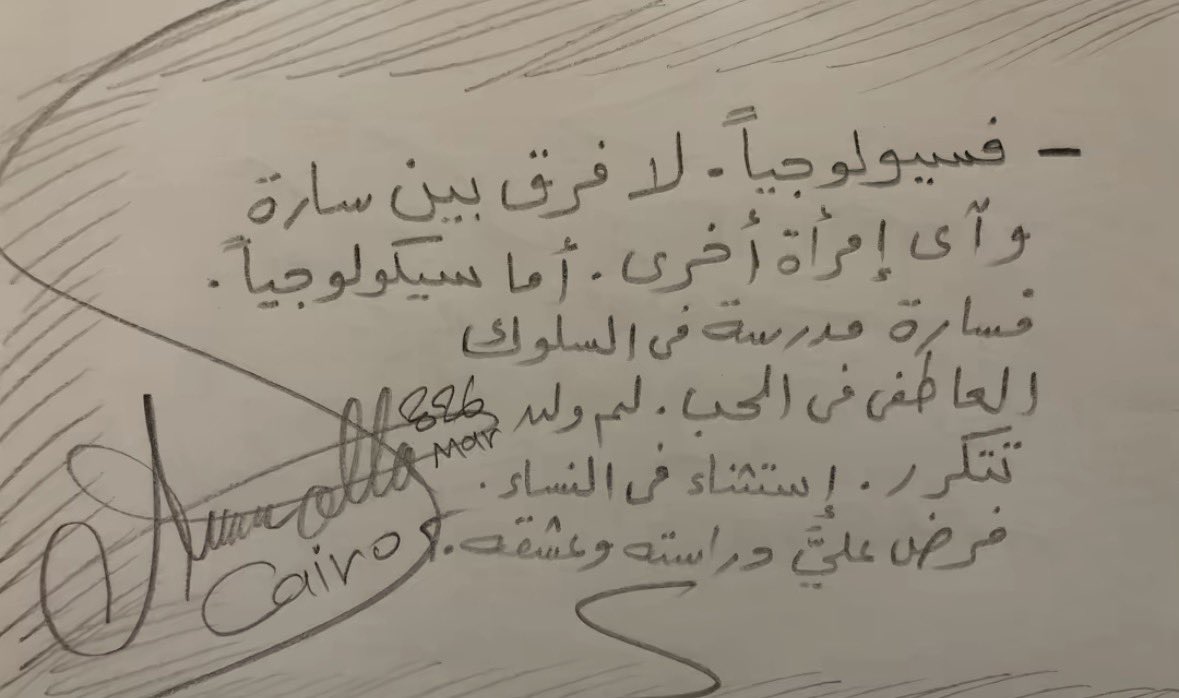 - فسيولوجياً. لا فرق بين سارة
وآى إمرأة أخرى. أما سيكولوجياً.
فسارة مدرسة فى السلوك
العاطفى فى الحب. لم ولد
تتكرر. إستثناء فى النساء.
فرض عليَّ دراسته وعشقه.
886
Mar
Cairo